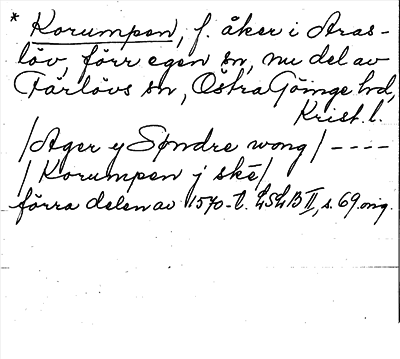 * Korumpen, f. åker i Aras-
löv, förr egen sn, nu del av
Färlövs sn, Östra Göinge hd,
Krist. l.
/Ager y Søndre wong/ ----
/Korumpen j skē/
förra delen av 1570-t. LSLB II, s. 69. orig.